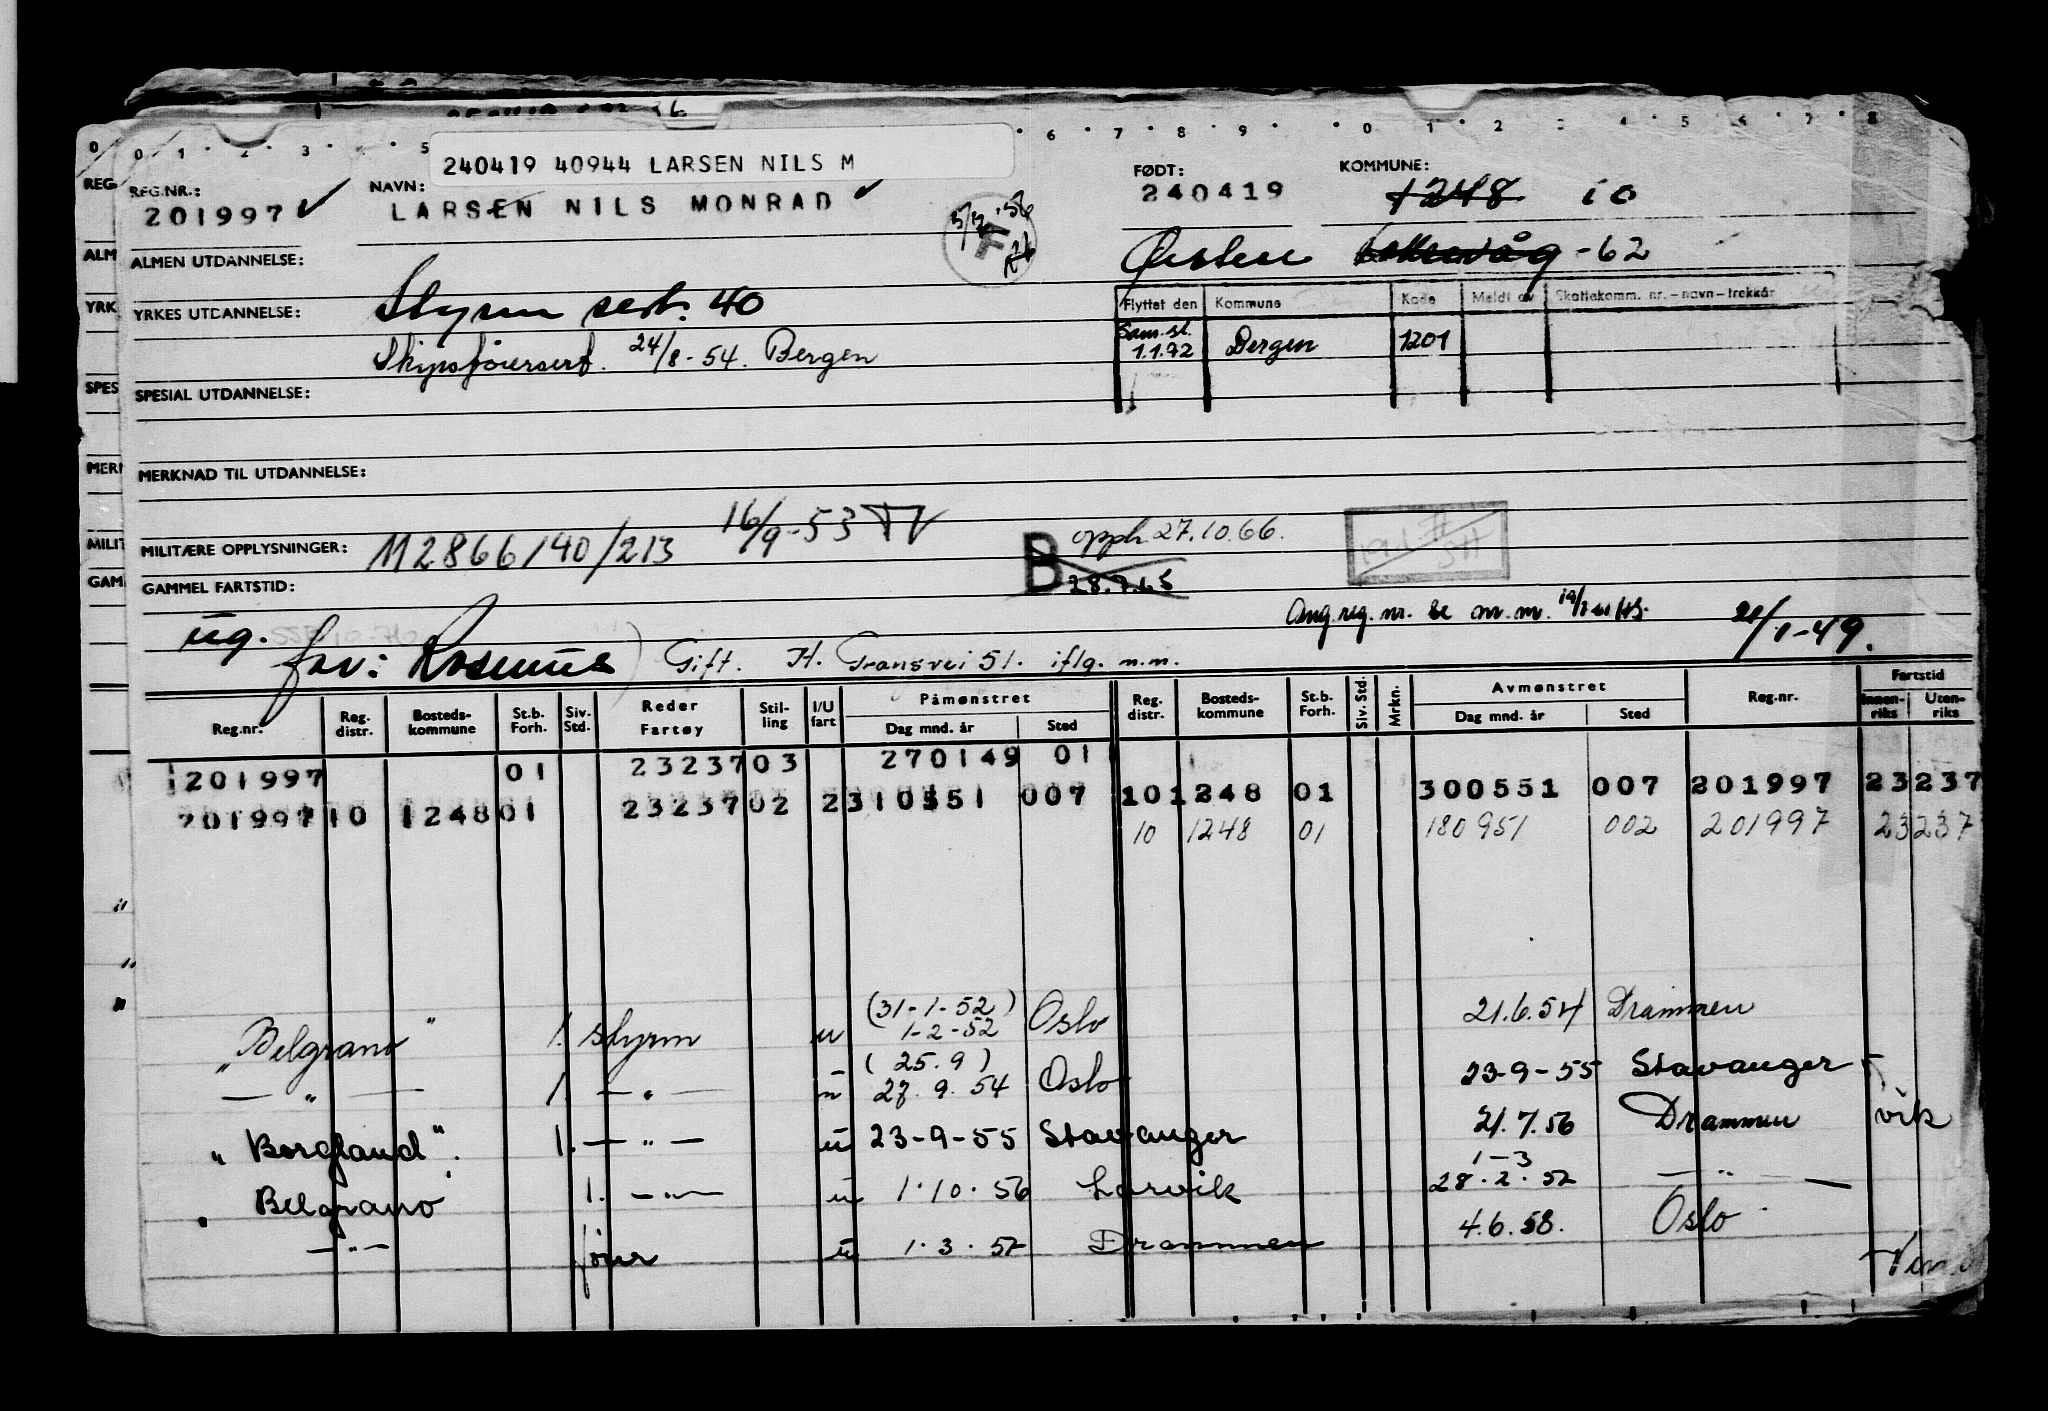 0 1 2 3 5 6 7 8 9 0 1 2 3 4 5 6 7 8
240419 40944 LARSEN NILS M
REG.NR.: NAVN: FØDT: KOMMUNE:
201997 LARSEN NILS MONRAD 240419 1248 10
5/3 '56
ALMEN UTDANNELSE: -62
YRKES UTDANNELSE: Styrm sert. 40
Flyttet den Kommune Kode Meldt av Skattekomm. nr.-navn-trekkår
Sam.sl. 1.1.72 Bergen 1201
Skipsførersert. 24/8-54. Bergen
SPESIAL UTDANNELSE:
MERKNAD TIL UTDANNELSE:
MILITÆRE OPPLYSNINGER: 112866/40/213 16/9-53
B opph 27.10.66.
28.7.65
GAMMEL FARTSTID:
Ang. reg. nr. se m.m.
21/1-49.
ug. far: Rasmus Gift. H. Fransvei 51. iflg. m.m.
Reg.nr. Reg. distr. Bosteds-kommune St.b. Forh. Siv. Std. Reder Fartøy Stil-ling I/U fart Påmønstret Dag mnd. år Sted Reg. distr. Bosteds-kommune St.b. Forh. Siv. Std. Mrkn. Avmønstret Dag mnd. år Sted Reg.nr. Fartstid Innen-riks Uten-riks
201997 01 23237 03 270149 01
201997 10 1248 01 23237 02 2 310551 007 10 1248 01 300551 007 201997 23 237
10 1248 01 180951 002 201997 23 237
(31-1-52)
"Belgrano" 1. styrm u 1-2-52 Oslo 21.6.54 Drammen
(25.9)
— " — 1. — " — u 27.9.54 Oslo 23-9-55 Stavanger
"Borgland". 1. — " — u 23-9-55 Stavanger 21.7.56 Drammen vik
1-3
"Belgrano" 1. — " — u 1.10.56 Larvik 28.2.57 — " —
— " — fører u 1.3.57 Drammen 4.6.58. Oslo